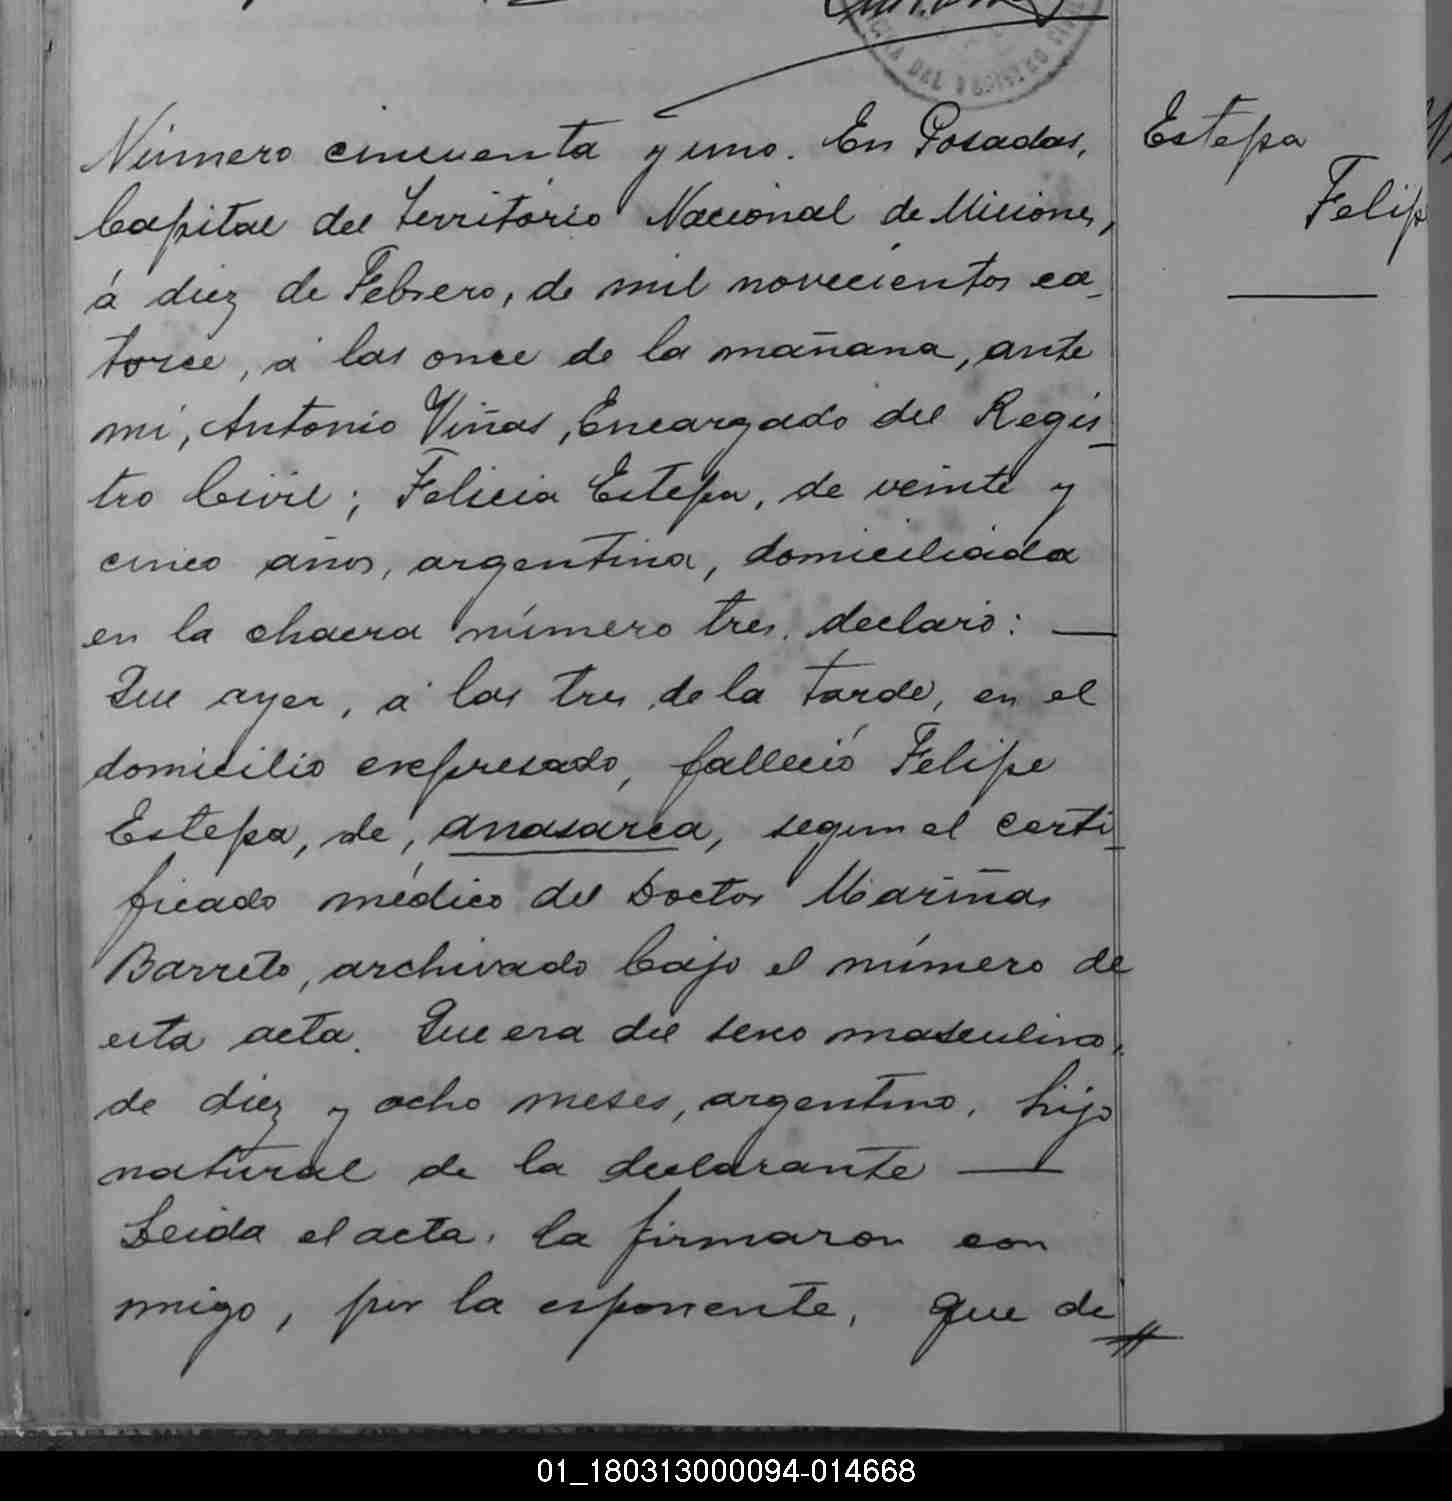 OFICINA DEL REGISTRO CIVIL
Número cincuenta y uno. En Posadas,
Capital del Territorio Nacional de Misiones,
á diez de Febrero, de mil novecientos ca-
torce, á las once de la mañana, ante
mí, Antonio Viñas, Encargado del Regis-
tro Civil; Felicia Estepa, de veinte y
cinco años, argentina, domiciliada
en la chacra número tres, declaró: —
Que ayer, á las tres de la tarde, en el
domicilio expresado, falleció Felipe
Estepa, de, anasarca, segun el certi-
ficado médico del Doctor Mariñas
Barreto, archivado bajo el número de
esta acta. Que era del sexo masculino,
de diez y ocho meses, argentino, hijo
natural de la declarante —
Leida el acta, la firmaron con
migo, por la esponente, que de
Estepa
Felip
01_180313000094-014668